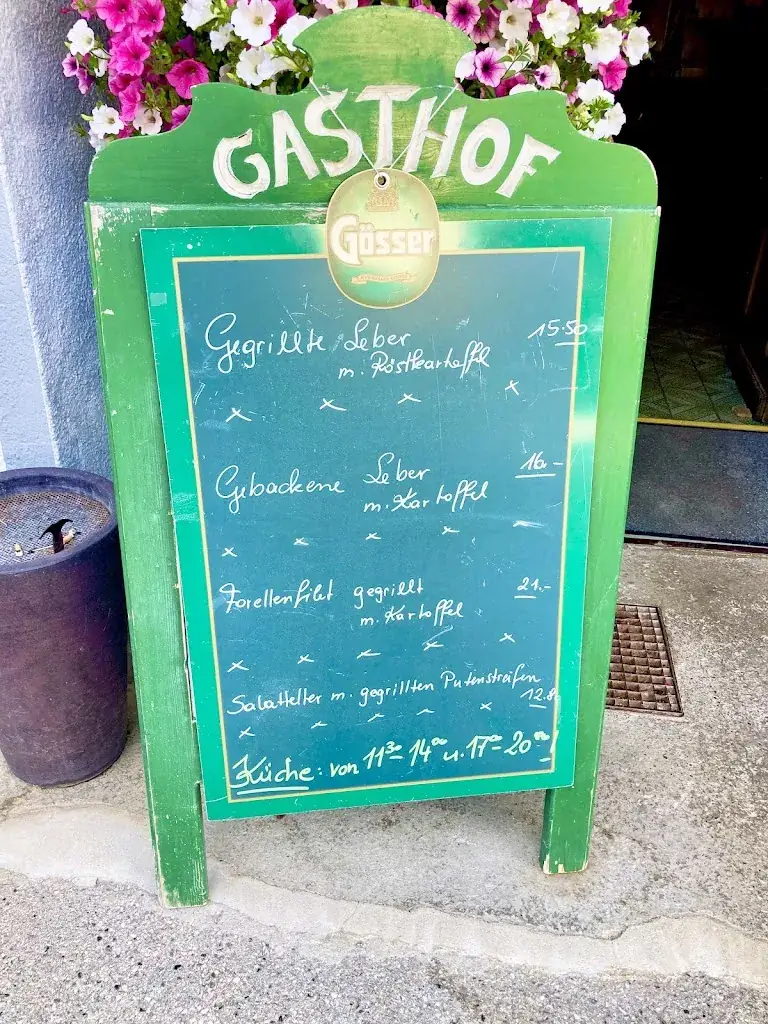 GASTHOF
Gösser
Gegrillte Leber 15.50
m. Röstkartoffel
Gebackene Leber 16.-
m. Kartoffel
Forellenfilet gegrillt 21.-
m. Kartoffel
Salatteller m. gegrillten Putenstreifen
12.80
Küche: von 11³⁰ - 14⁰⁰ u. 17⁰⁰ - 20⁰⁰!